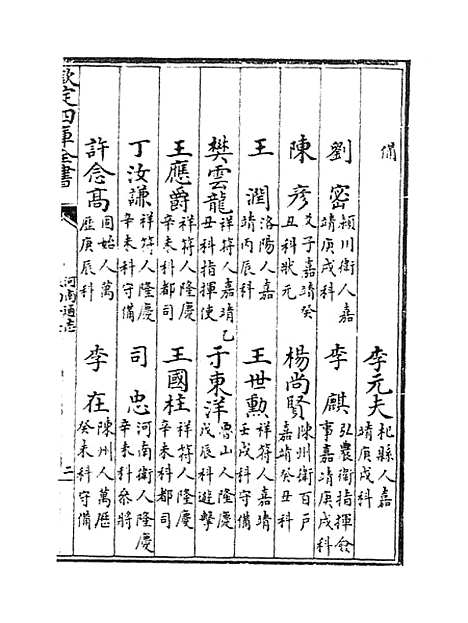 備
李元夫 杞縣人嘉靖庚戌科
劉密 潁川衛人嘉靖庚戌科 李麒 弘農衛指揮僉事嘉靖庚戌科
陳彥 文子嘉靖癸丑科狀元 楊尚賢 陳州衛百戶嘉靖癸丑科
王潤 洛陽人嘉靖丙辰科 王世勲 祥符人嘉靖壬戌科守備
樊雲龍 祥符人嘉靖乙丑科指揮使 于東洋 魯山人隆慶戊辰科遊擊
王應爵 祥符人隆慶辛未科都司 王國柱 祥符人隆慶辛未科都司
丁汝謙 祥符人隆慶辛未科守備 司忠 河南衛人隆慶辛未科叅將
許念髙 固始人萬歷庚辰科 李在 陳州人萬歷癸未科守備
欽定四庫全書 河南通志 二